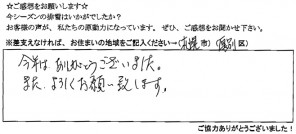 ☆ご感想をお願いします☆
今シーズンの排雪はいかがでしたか？
お客様の声が、私たちの原動力になっています。ぜひ、ご感想をお聞かせ下さい。
※差支えなければ、お住まいの地域をご記入ください→（札幌 市）（厚別 区）
今年は ありがとうございました。
また よろしくお願い致します。
ご協力ありがとうございました！